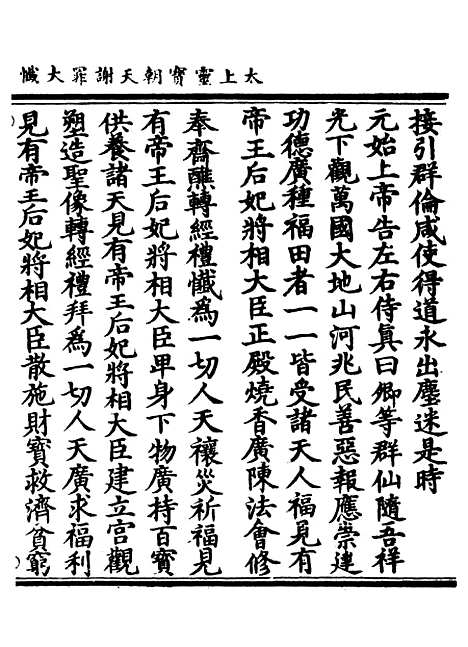 太上靈寳朝天謝罪大懺
接引群倫咸使得道永出塵迷是時
元始上帝告左右侍眞曰卿等群仙隨吾祥
光下觀萬國大地山河兆民善惡報應崇建
功德廣種福田者一一皆受諸天人福見有
帝王后妃將相大臣正殿燒香廣陳法會修
奉齋醮轉經禮懺爲一切人天禳災祈福見
有帝王后妃將相大臣卑身下物廣持百寳
供養諸天見有帝王后妃將相大臣建立宫觀
塑造聖像轉經禮拜爲一切人天廣求福利
見有帝王后妃將相大臣散施財寳救濟貧窮